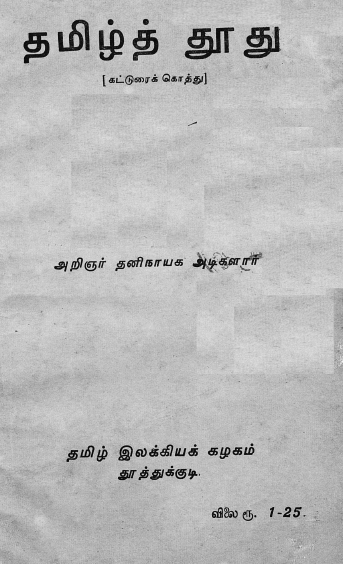 தமிழ்த் தூது
[கட்டுரைக் கொத்து]
அறிஞர் தனிநாயக அடிகளார்
தமிழ் இலக்கியக் கழகம்
தூத்துக்குடி.
விலை ரூ. 1-25.